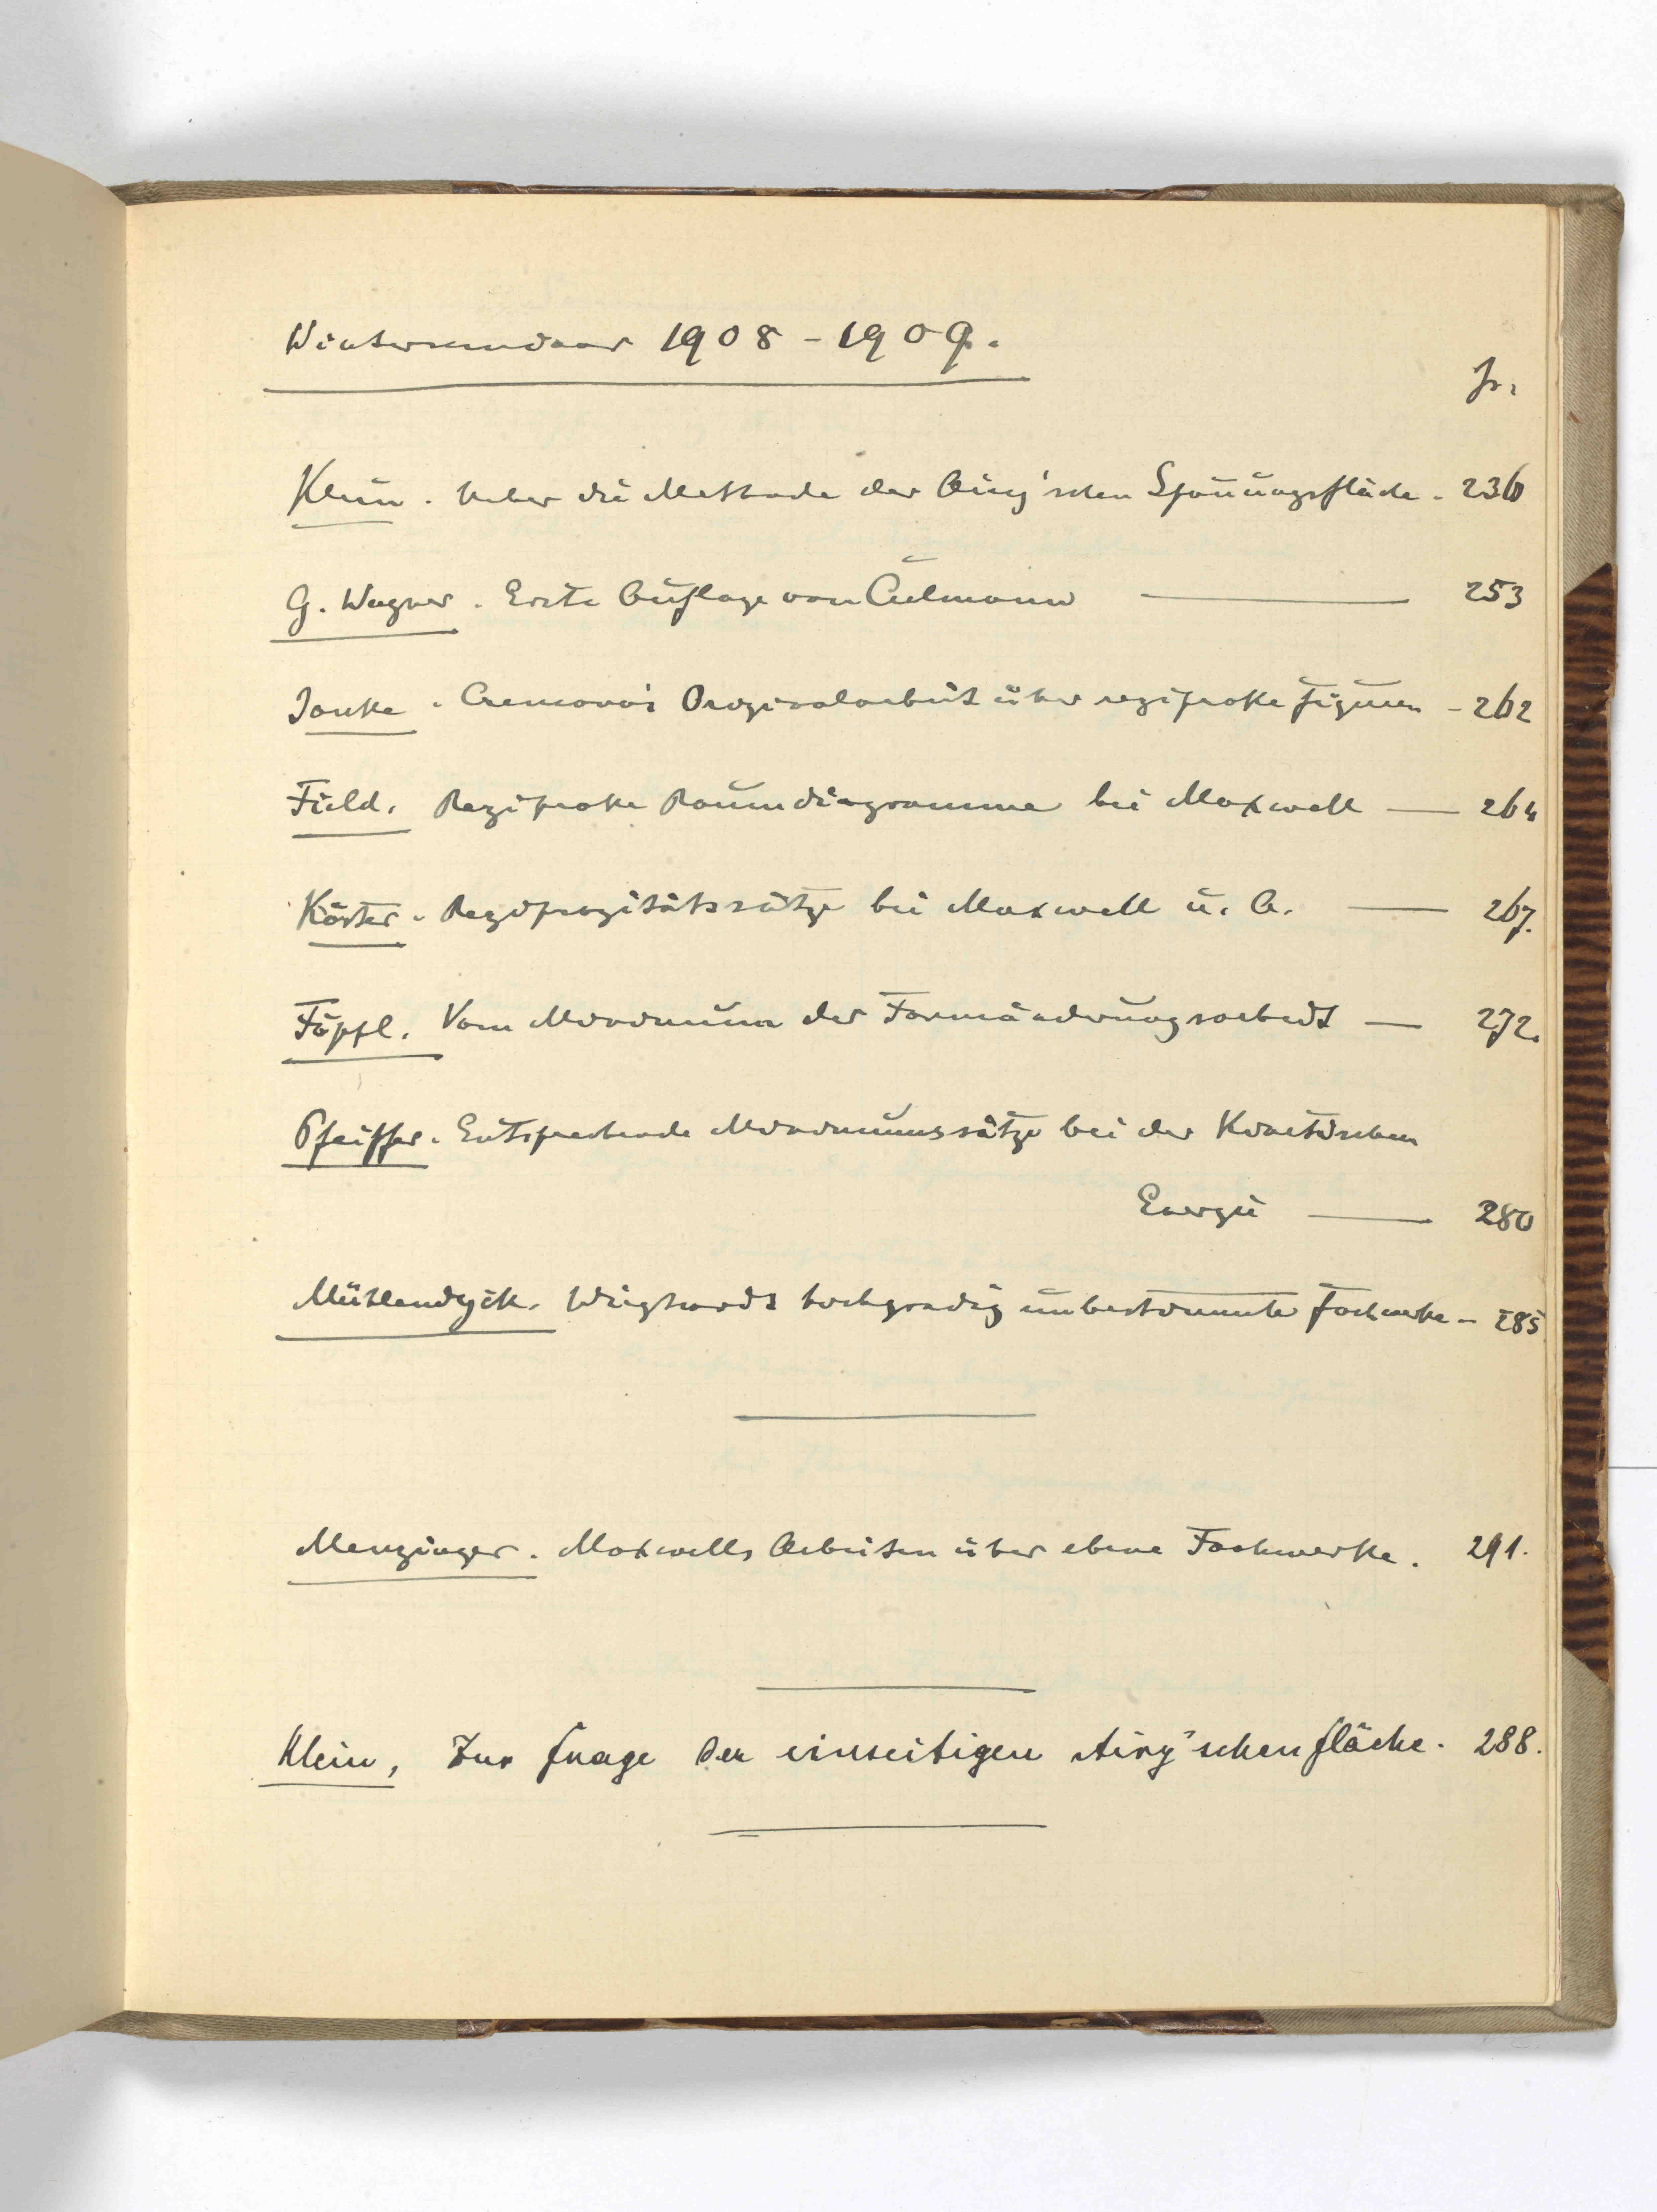 Winterseminar 1908-1909.
p.
Klein. Ueber die Methode der Airy'schen Spannungsfläche. 236
G. Wagner. Erste Auflage von Culmann — 253
Janke. Cremona's Originalarbeit über reziproke Figuren - 262
Field. Reziproke Raumdiagramme bei Maxwell — 264
Köster. Reziprozitätssätze bei Maxwell u. A. — 267.
Föppl. Vom Minimum der Formänderungsarbeit — 272.
Pfeiffer. Entsprechende Minimumssätze bei der Kinetischen
Energie — 280
Mühlendyck. Wieghardts hochgradig unbestimmte Fachwerke - 285
Menzinger. Maxwells Arbeiten über ebene Fachwerke. 291.
Klein, Zur Frage der einseitigen Airy'schen Fläche. 288.